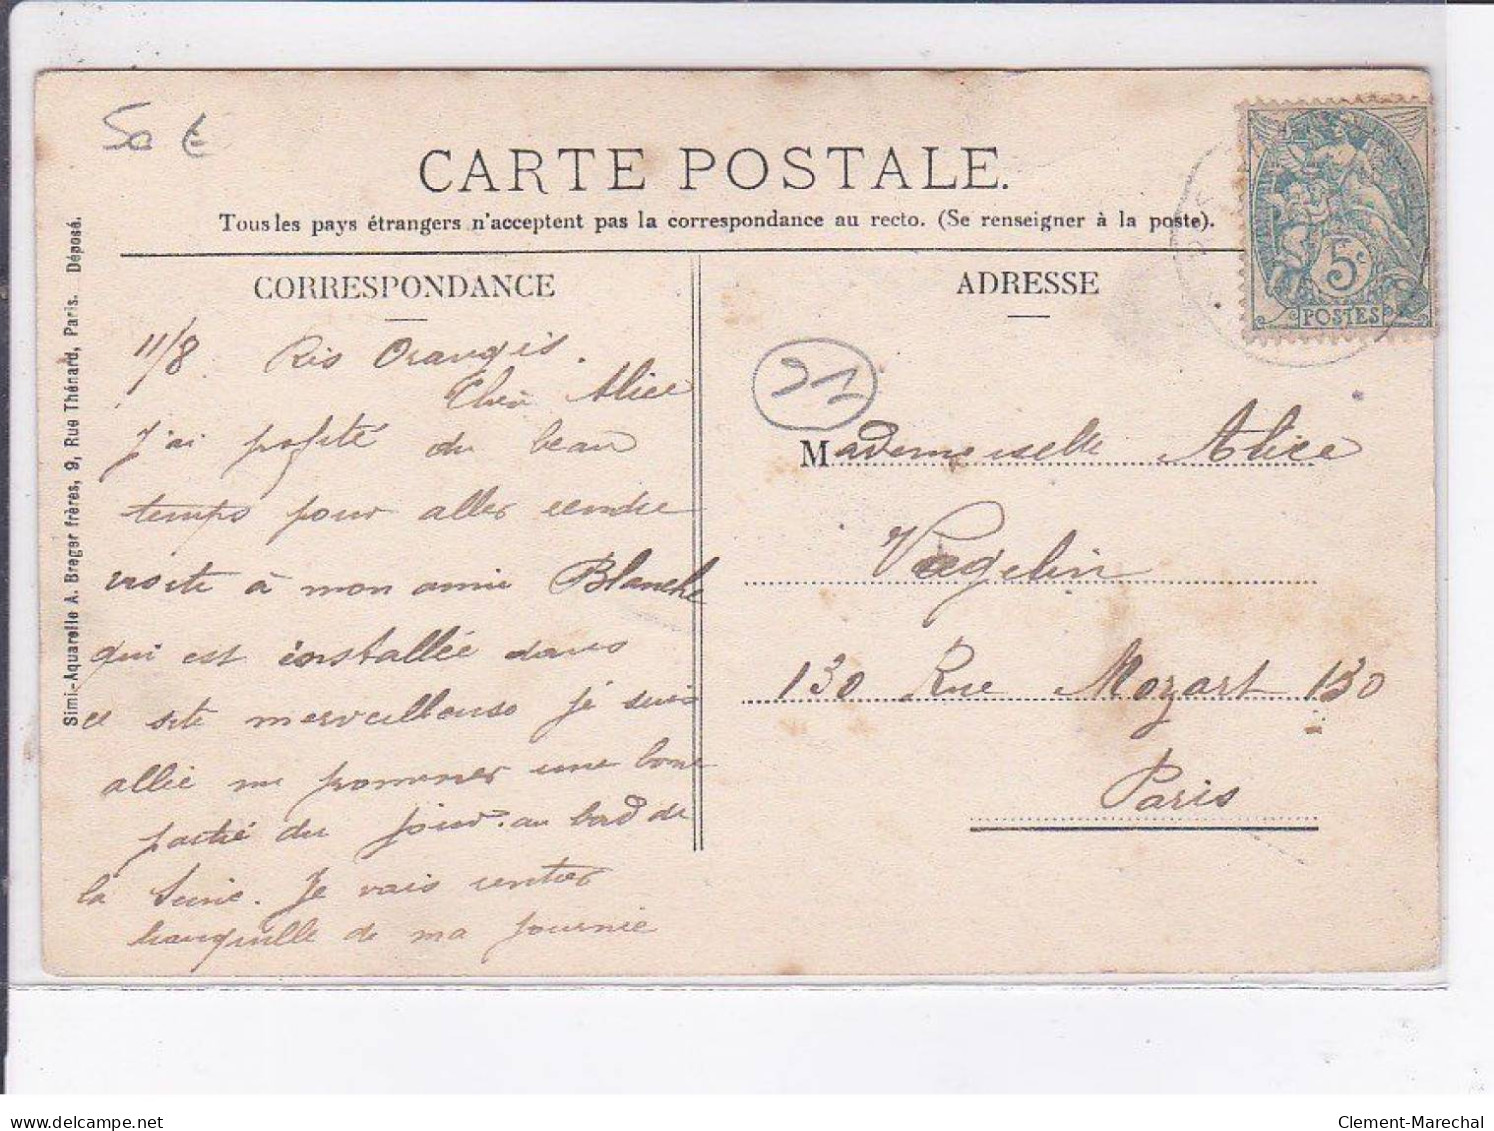 50 €
CARTE POSTALE.
Tous les pays étrangers n'acceptent pas la correspondance au recto. (Se renseigner à la poste).
CORRESPONDANCE
ADRESSE
5c
POSTES
Simi-Aquarelle A. Breger frères, 9, Rue Thénard, Paris. Déposé.
11/8 Ris Orangis.
Chère Alice
J'ai profité du beau
temps pour aller rendre
visite à mon amie Blanche
qui est installée dans
ce site merveilleuse je suis
allée me promener une bone
partie du jour. au bord de
la Seine. Je vais rentrer
tranquille de ma journée
21
Mademoiselle Alice
Vogelin
130 Rue Mozart 130
Paris
Clement-Marechal
delcampe.net